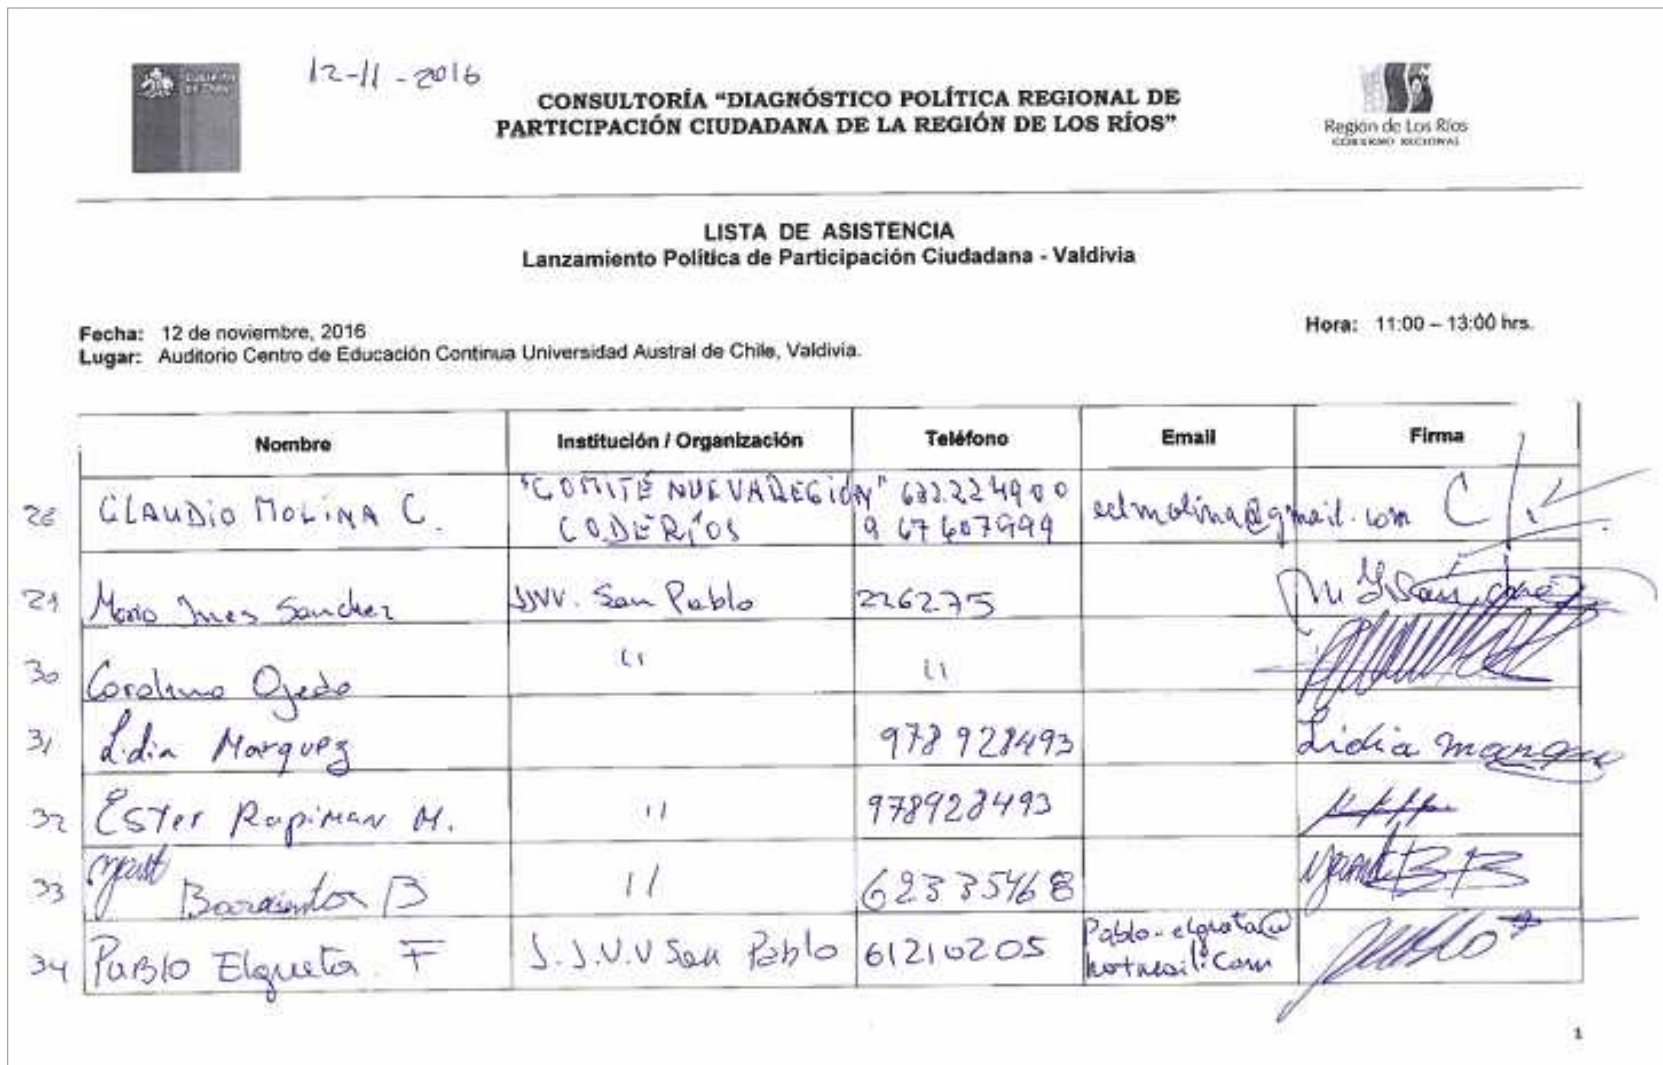 12-11-2016
CONSULTORÍA “DIAGNÓSTICO POLÍTICA REGIONAL DE
PARTICIPACIÓN CIUDADANA DE LA REGIÓN DE LOS RÍOS”
Región de Los Ríos
GOBIERNO REGIONAL
LISTA DE ASISTENCIA
Lanzamiento Política de Participación Ciudadana - Valdivia
Fecha: 12 de noviembre, 2016
Hora: 11:00 – 13:00 hrs.
Lugar: Auditorio Centro de Educación Continua Universidad Austral de Chile, Valdivia.
Nombre Institución / Organización Teléfono Email Firma
CLAUDIO MOLINA C. "COMITÉ NUEVA REGIÓN" 632224900
CODERÍOS 9 67607999
Maria Ines Sanchez JJVV. San Pablo 226275
30 Carolina Ojeda " "
31 Lidia Marquez 978 928493 Lidia
32 Ester Rapiman M. " 978928493
33 Barrientos B "
34 Pablo Elgueta F J.J.V.V San Pablo 61210205 Pablo-elgueta@
hotmail.com
1